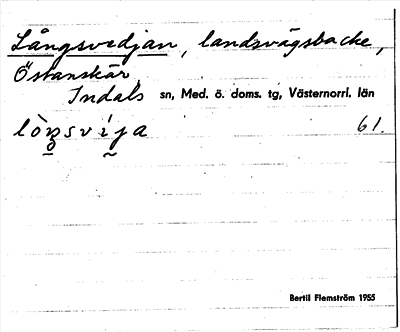 Långsvedjan, landsvägsbacke,
Östanskär
Indals sn, Med. ö. doms. tg, Västernorrl. län
61.
Bertil Flemström 1955